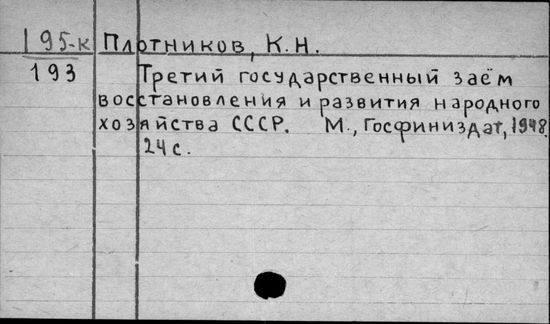 195-к Плотников, К.Н.
193 Третий государственный заём
восстановления и развития народного
хозяйства СССР. М., Госфиниздат, 1948.
24 с.